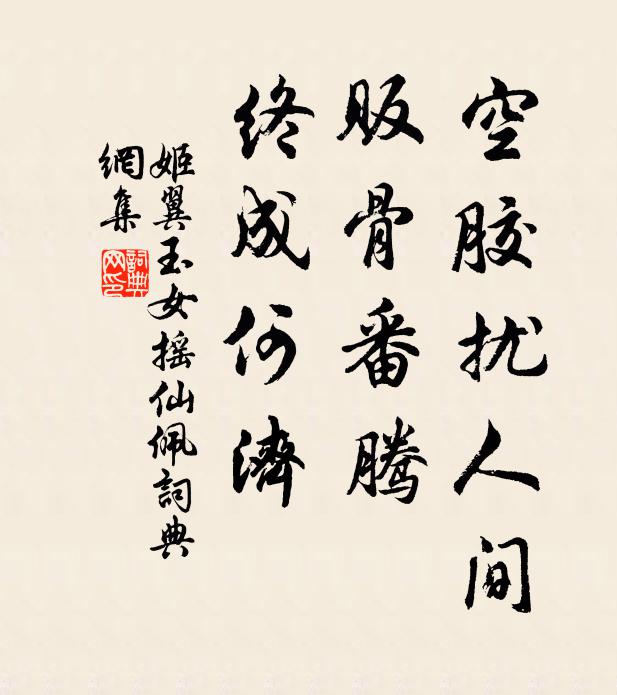 空胶扰人间
贩骨番腾
终成何济
姬翼玉女摇仙佩詞典
網集
詞典
网印